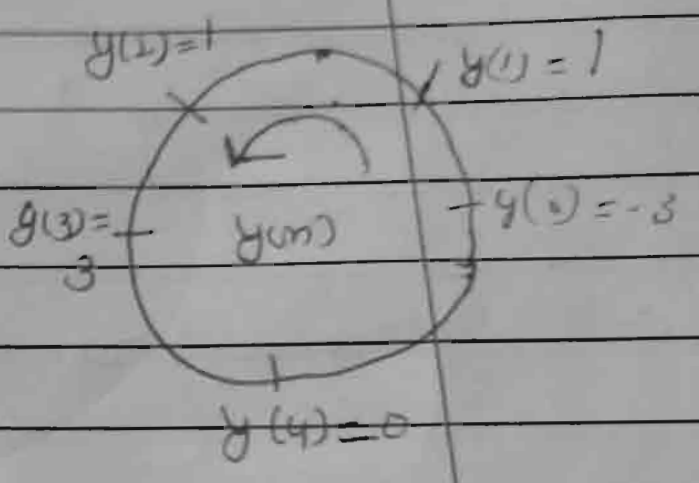 y(2)=1
y(1) = 1
y(3)=
3
y(n)
y(0) = -3
y(4)=0